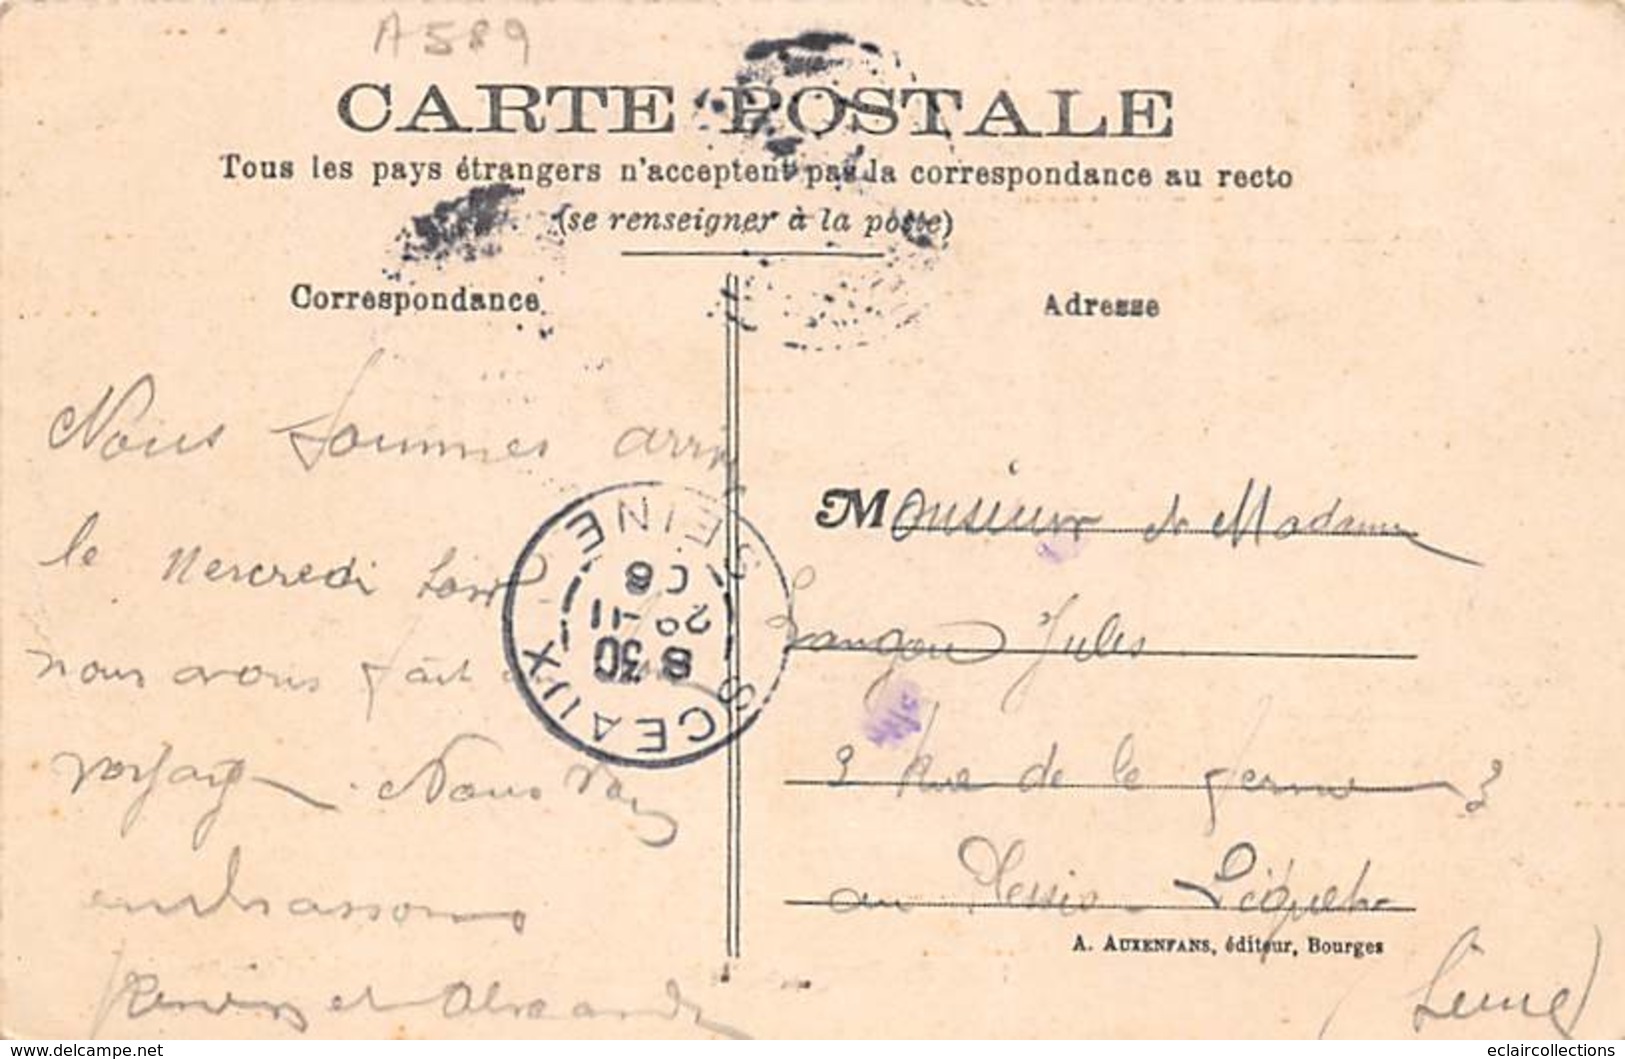 A 589
CARTE POSTALE
Tous les pays étrangers n'acceptent pas la correspondance au recto
(se renseigner à la poste)
Correspondance
Adresse
Nous sommes arri
le mercredi soir
nous avons fait
voyage. Nous vous
embrassons
et Alexandre
SCEAUX SEINE
8 30
29 - 11
08
Monsieur et Madame
Langou Jules
9 Rue de la Ferme 9
au Plessis-Piquet
(Seine)
A. AUXENFANS, éditeur, Bourges
www.delcampe.net
eclaircollections